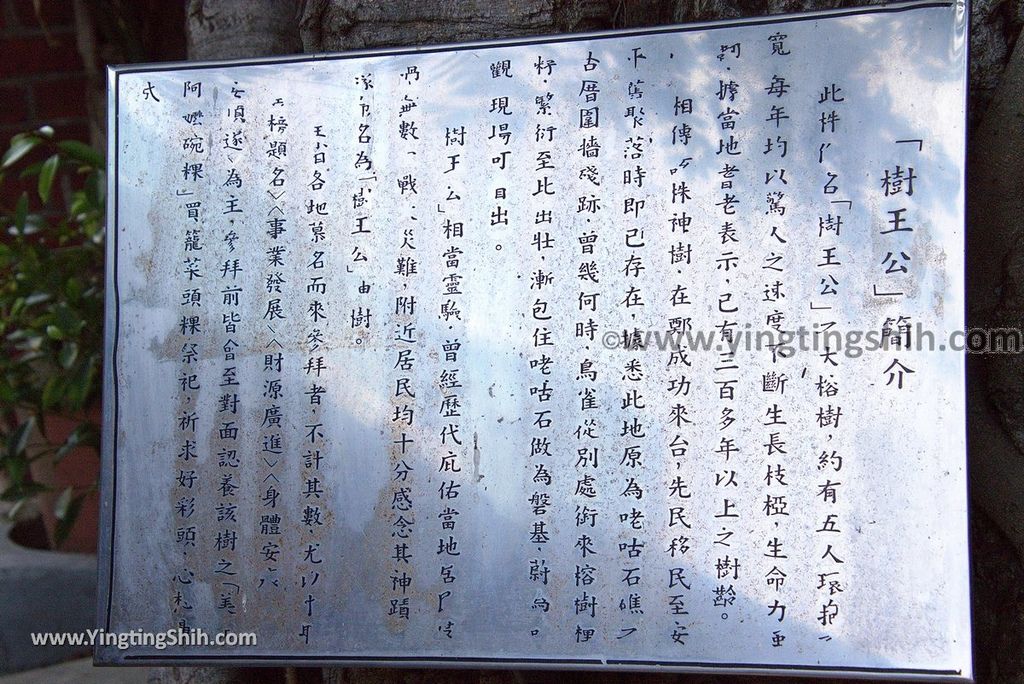 「樹王公」簡介
此株 名「樹王公」 大榕樹，約有五人環抱
寬 每年均以驚人之速度不斷生長枝椏，生命力
據當地耆老表示，已有三百多年以上之樹齡。
相傳 株神樹，在鄭成功來台，先民移民至安
平舊聚落時即已存在，據悉此地原為咾咕石礁
古厝圍牆殘跡，曾幾何時，鳥雀從別處銜來榕樹種
籽，繁衍至此 壯，漸包住咾咕石做為磐基，蔚為
觀 現場可 目出 。
樹王公」相當靈驗，曾經歷代庇佑當地居
無數， 戰 災難，附近居民均十分感念其神蹟
名為「樹王公」由樹。
各地慕名而來參拜者，不計其數，尤以
榜題名＞＜事業發展＞＜財源廣進＞＜身體安
順遂＞為王，參拜前皆會至對面認養該樹之「
阿嬤碗粿」買籠菜頭粿祭祀，祈求好彩頭，心想
©www.yingtingshih.com
www.YingtingShih.com